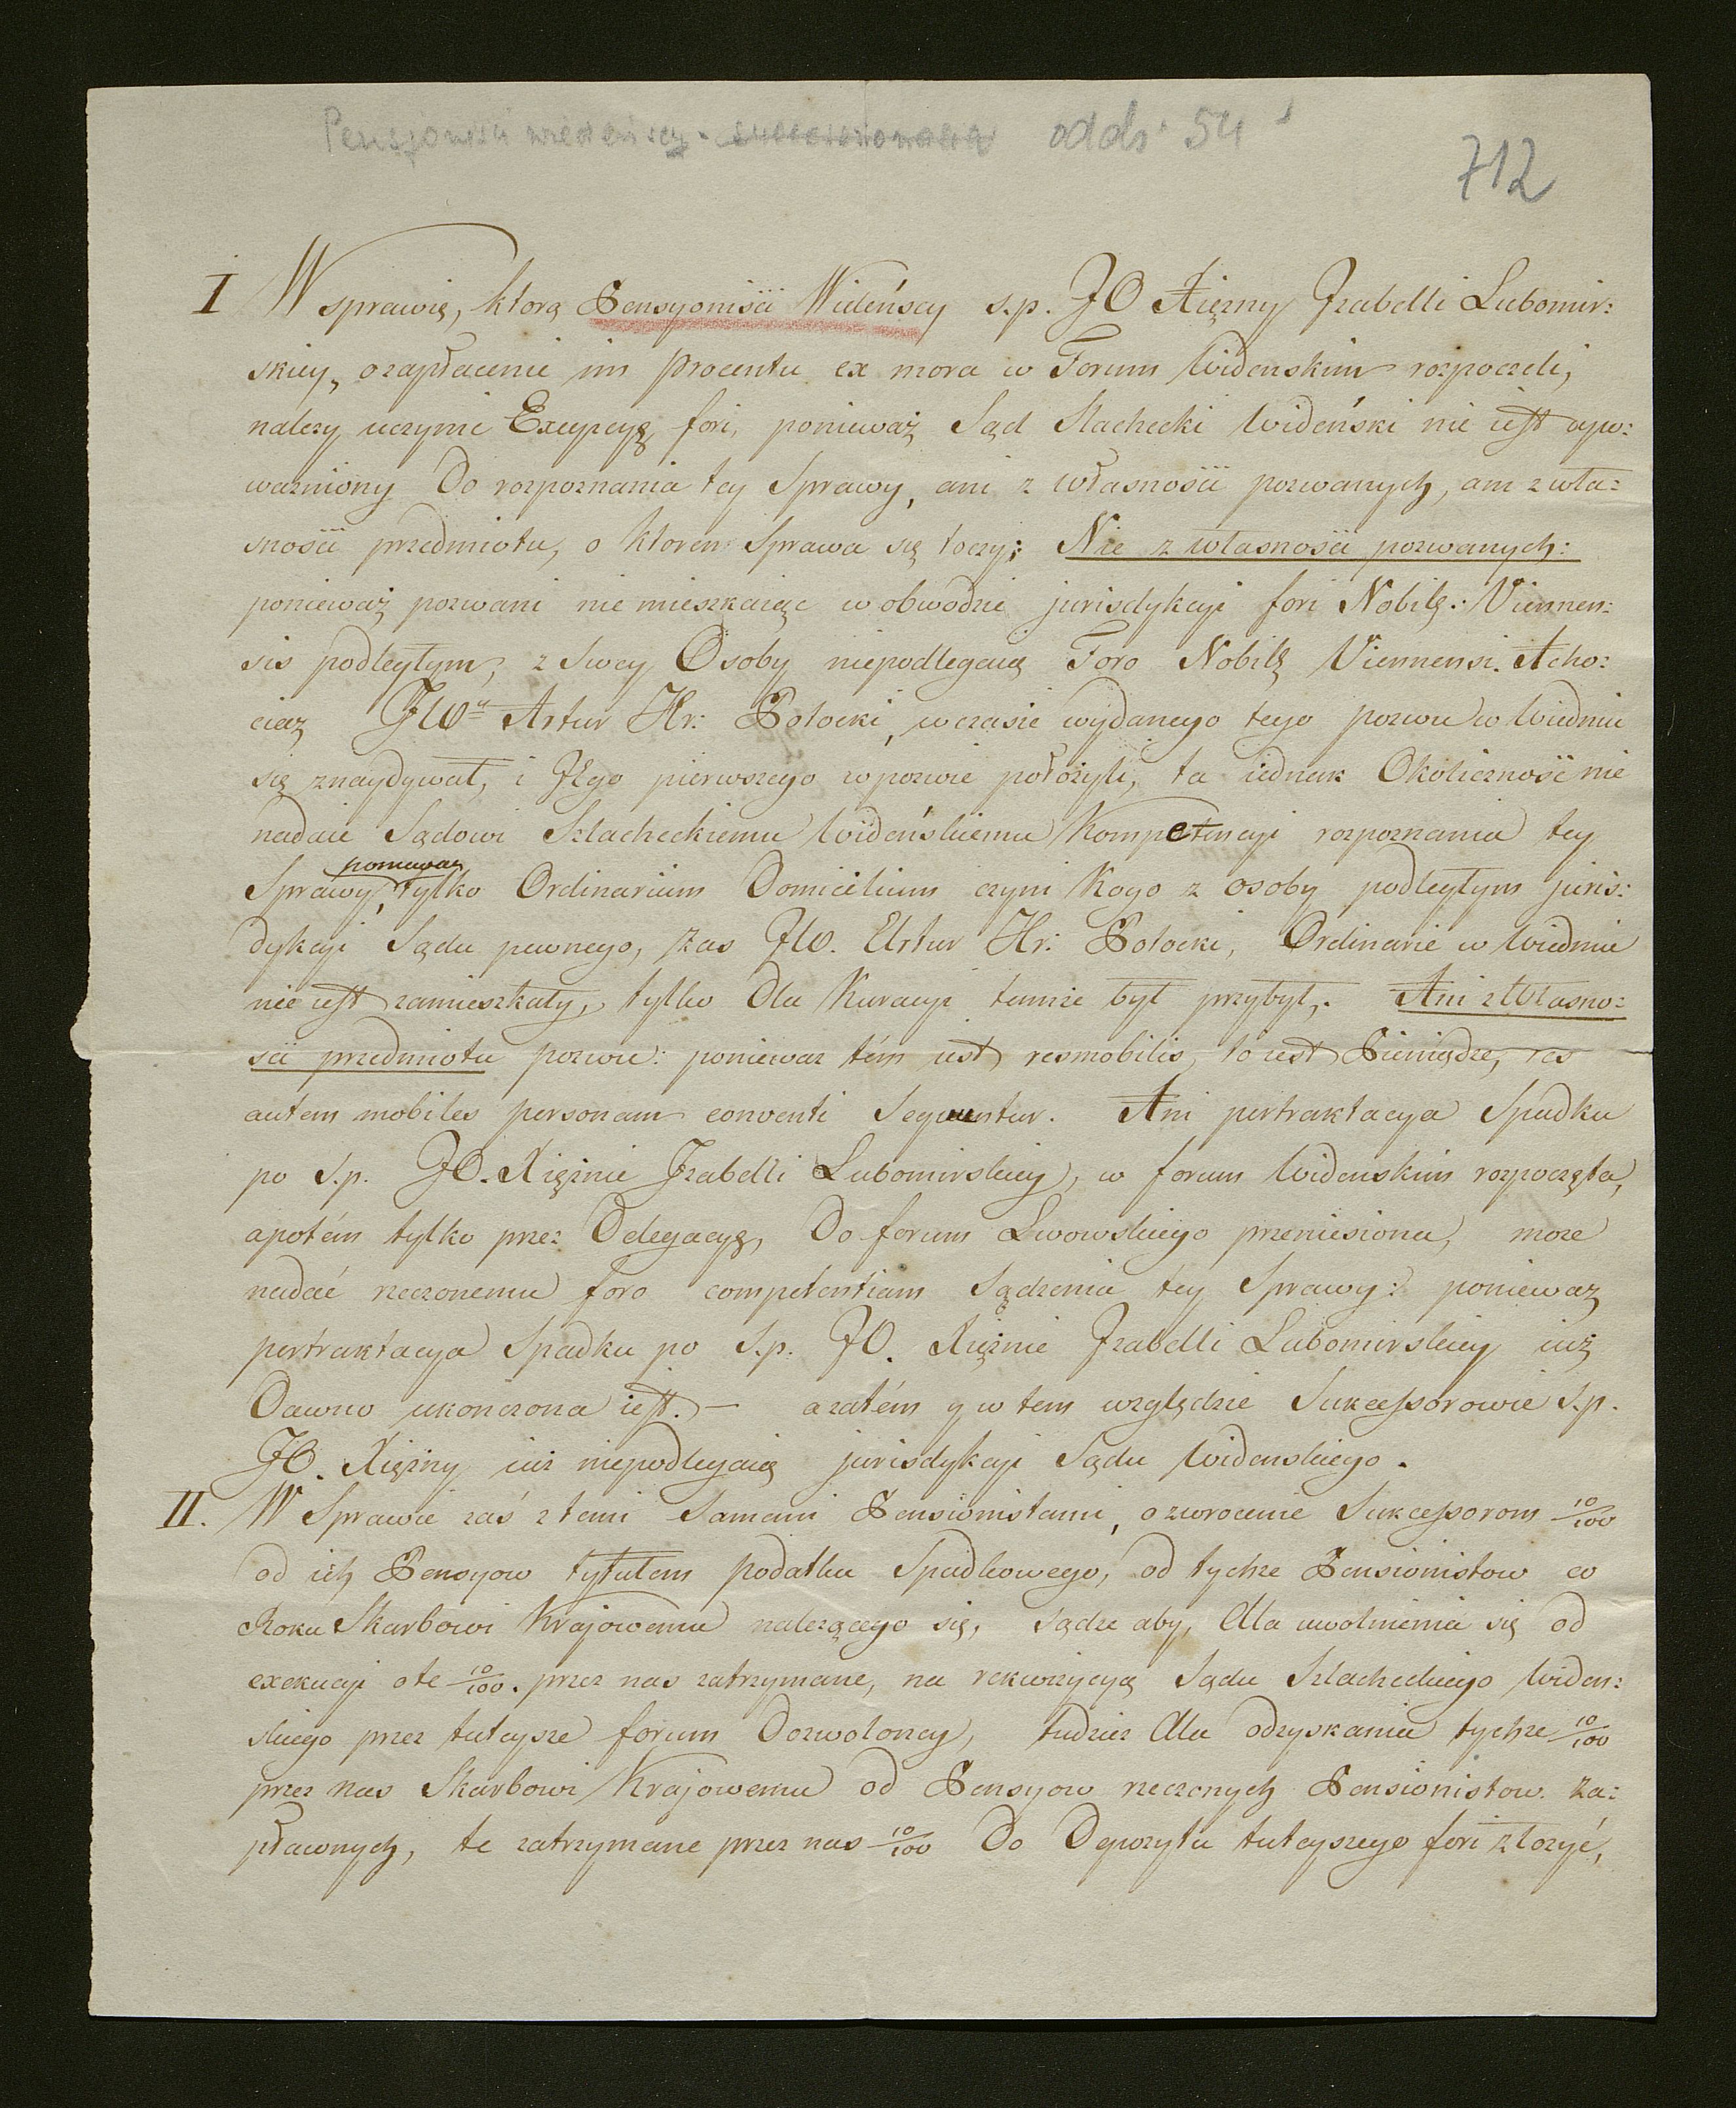 Pensjoniści wiedeńscy oddz 54
712
I W sprawie, ktorą Pensyoniści Wideńscy s.p. JO Xiężny Izabelli Lubomir:
skiey, o zapłacenie im procentu ex mora w Forum Widenskim rozpoczeli,
nalezy uczynic Excepcyą fori, ponieważ Sąd Slachecki Wideński nie iest upo:
ważniony do rozpoznania tey Sprawy, ani z własności pozwanych, ani z wła:
sności przedmiotu, o ktoren Sprawa się toczy; Nie z własności pozwanych:
ponieważ pozwani nie mieszkaiąc w obwodzie jurisdykcyi fori Nobilę: Viennen:
sis podległym, z swey Osoby niepodlegaią Foro Nobilę Viennensi. A cho:
ciaz JW Artur Hr: Potocki, w czasie wydanego tego pozwu w Widniu
się znaydywał, i Jego pierwszego w pozwie położyli, ta iednak Okoliczność nie
nadaie Sądowi Szlacheckiemu Wideńskiemu Kompetencyi rozpoznania tey
Sprawy, ponieważ tylko Ordinarium Domicilium czyni Kogo z osoby podległym juris:
dykcyi Sądu pewnego, zas JW. Artur Hr: Potocki, Ordinarie w Wiedniu
nie iest zamieszkały, tylko dla Kuracyi tamże był przybył. Ani z Własno:
ści przedmiotu pozwu: poniewaz tém iest res mobilis, to iest Pieniądze, res
autem mobiles personam conventi sequuntur. Ani pertraktacya Spadku
po s.p. JO. Xiężnie Izabelli Lubomirskiey, w forum Widenskim rozpoczęta,
a potém tylko przez Delegacyą, do forum Lwowskiego przeniesiona, może
nadać rzeczonemu foro competentiam Sądzenia tey Sprawy: ponieważ
pertraktacya Spadku po s.p. JO. Xiężnie Izabelli Lubomirskiey iuż
dawno ukończona iest. — a zatém y w tem względzie Sukcessorowie s.p.
JO. Xiężny iuż niepodlegaią jurisdykcyi Sądu Widenskiego.
II. W Sprawie zaś z temi samemi Pensionistami, o zwrocenie Sukcessorom 10/100
od ich Pensyow tytułem podatku Spadkowego, od tychże Pensionistow co
Roku Skarbowi Krajowemu nalezącego się, sądze aby, dla uwolnienia się od
exekucyi o te 10/100. przez nas zatrzymane, na rekwizycyą Sądu Szlacheckiego Widen:
skiego przez tuteysze forum dozwoloney, tudzież dla odzyskania tychże 10/100
przez nas Skarbowi Krajowemu od Pensyow rzeczonych Pensionistow za:
pławnych, te zatrzymane przez nas 10/100 do Depozytu tuteyszego fori złożyć,